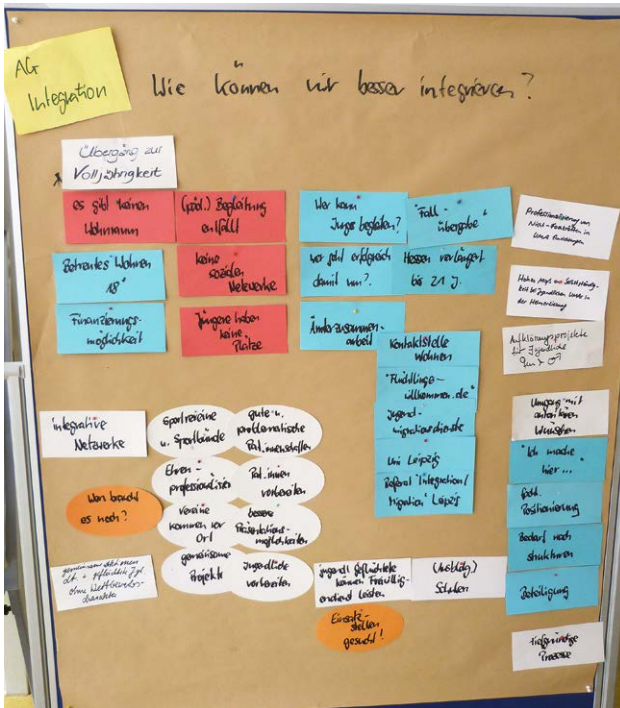 AG
Integration
Wie können wir besser integrieren?
Übergäng zur
Volljährigkeit
es gibt keinen
Wohnraum
(päd.) Begleitung
entfällt
Wer kann
Jungs begleiten?
"Fall -
übergabe"
Professionalisierung von
Betreutes Wohnen
18+
keine
sozialen
Netzwerke
wer geht erfolgreich
damit um?
Hessen verlängert
bis 21 J.
Finanzierungs-
möglichkeit
Jüngere haben
keine
Plätze
Ämterzusammen-
arbeit
Kontaktstelle
Wohnen
Aufklärungsprojekte
für Jugendliche
"Flüchtlinge-
willkommen.de"
Jugend-
migrationsdienste
Uni Leipzig
Referat "Integration/
Migration" Leipzig
Umgang mit
autoritären
Wünschen
"Ich mache
hier..."
Positionierung
Bedarf nach
Strukturen
Beteiligung
tiefgründige
Prozesse
integrative
Netzwerke
Sportvereine
u. Sportbünde
gute u.
problematische
Pat.innenschaften
Wen braucht
es noch?
Ehren-
professionalisten
Pat.innen
vorbereiten
Vereine
kommen vor
Ort
bessere
Präsentations-
möglichkeiten
gemeinsame
Projekte
Jugendliche
vorbereiten
ohne Wettbewerbs-
charakter
jugendl. Geflüchtete
können Freiwilli-
gendienst leisten
(Ausbildg)
Schulen
Einsatz-
stellen
gesucht!